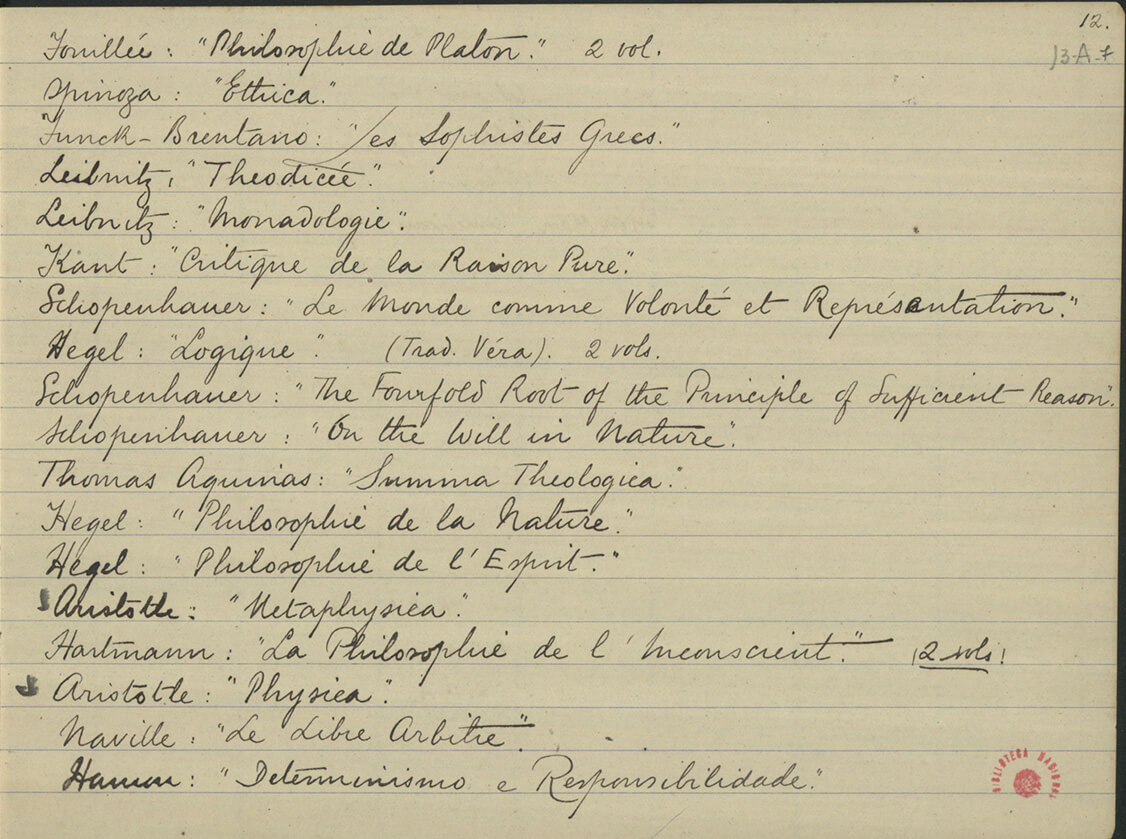 12.
13-A-7
Fouillée: "Philosophie de Platon." 2 vol.
Spinoza: "Ethica."
Funck-Brentano: "Les Sophistes Grecs."
Leibnitz: "Theodicée".
Leibnitz: "Monadologie".
Kant: "Critique de la Raison Pure".
Schopenhauer: "Le Monde comme Volonté et Représentation."
Hegel: "Logique". (Trad. Véra). 2 vols.
Schopenhauer: "The Fourfold Root of the Principle of Sufficient Reason".
Schopenhauer: "On the Will in Nature".
Thomas Aquinas: "Summa Theologica".
Hegel: "Philosophie de la Nature."
Hegel: "Philosophie de l'Esprit."
Aristotle: "Metaphysica".
Hartmann: "La Philosophie de l'Inconscient." 2 vols!
Aristotle: "Physica".
Naville: "Le Libre Arbitre".
Hamon: "Determinismo e Responsibilidade."
BIBLIOTECA NACIONAL